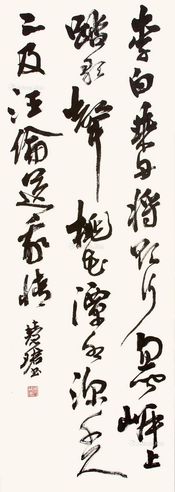 李白乘舟將欲行忽聞岸上
踏歌聲桃花潭水深千尺
不及汪倫送我情